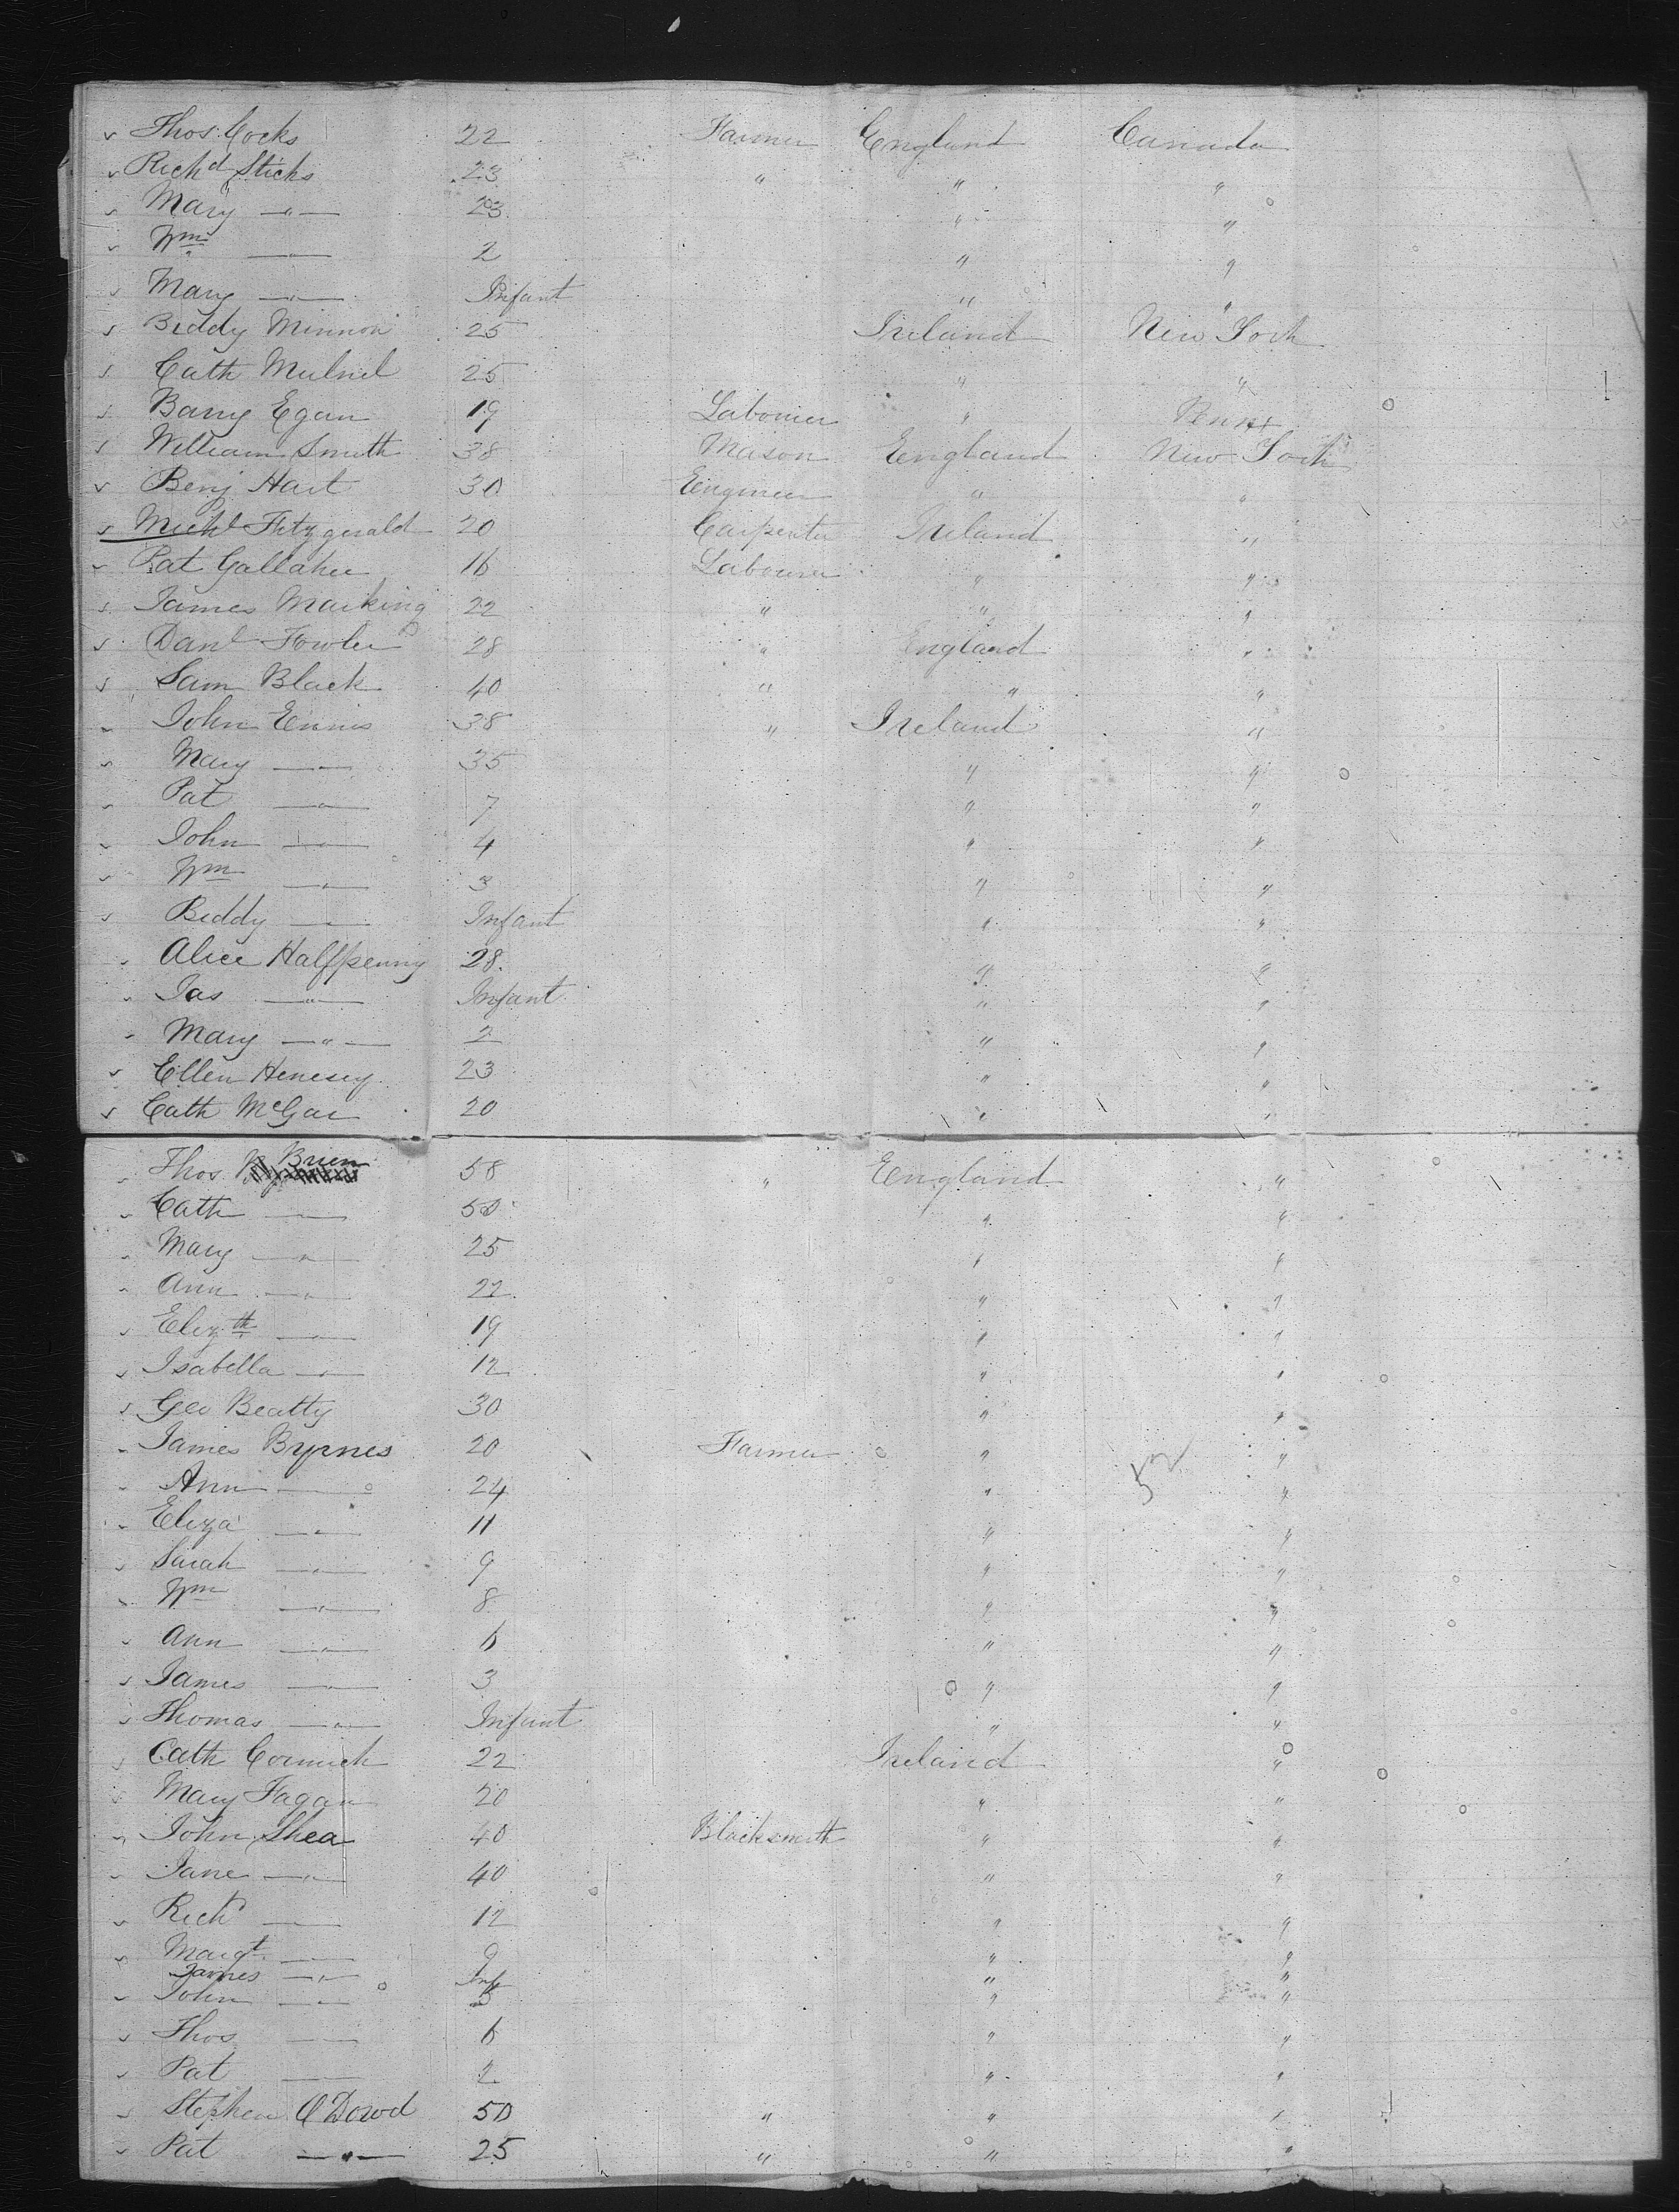 ✓ Thos. Cocks 22 Farmer England Canada
✓ Richd Sticks 23 " " "
✓ Mary —"— 23 " "
✓ Wm —"— 2 " "
✓ Mary —"— Infant " "
✓ Biddy Minnon 25 Ireland New York
✓ Cath Mulnil 25 " "
✓ Barny Egan 19 Labourer " Penn
✓ William Smith 38 Mason England New York
✓ Benj Hart 30 Engineer " "
✓ Michl Fitzgerald 20 Carpenter Ireland "
✓ Pat Gallaher 16 Labourer " "
✓ James Marking 22 " " "
✓ Danl Fowler 28 " England "
✓ Sam Black 40 " " "
✓ John Ennis 38 " Ireland "
✓ Mary —"— 35 " "
✓ Pat —"— 7 " "
✓ John —"— 4 " "
✓ Wm —"— 3 " "
✓ Biddy —"— Infant " "
✓ Alice Halfpenny 28 " "
✓ Jas —"— Infant " "
✓ Mary —"— 2 " "
✓ Ellen Henesey 23 " "
✓ Cath McGar 20 " "
✓ Thos Brien 58 " England "
✓ Cath —"— 50 " "
✓ Mary —"— 25 " "
✓ Ann —"— 22 " "
✓ Elizth —"— 19 " "
✓ Isabella —"— 12 " "
✓ Geo Beatty 30 " "
✓ James Byrnes 20 Farmer " "
✓ Ann —"— 24 " 52 "
✓ Eliza —"— 11 " "
✓ Sarah —"— 9 " "
✓ Wm —"— 8 " "
✓ Ann —"— 6 " "
✓ James —"— 3 " "
✓ Thomas —"— Infant " "
✓ Cath Cormick 22 Ireland "
✓ Mary Fagan 20 " "
✓ John Shea 40 Blacksmith " "
✓ Jane —"— 40 " "
✓ Richd —"— 12 " "
✓ Margt —"— 9 " "
James —"— Inf " "
✓ John —"— " "
✓ Thos —"— 6 " "
✓ Pat —"— 2 " "
✓ Stephen O'Dowd 50 " " "
✓ Pat —"— 25 " " "